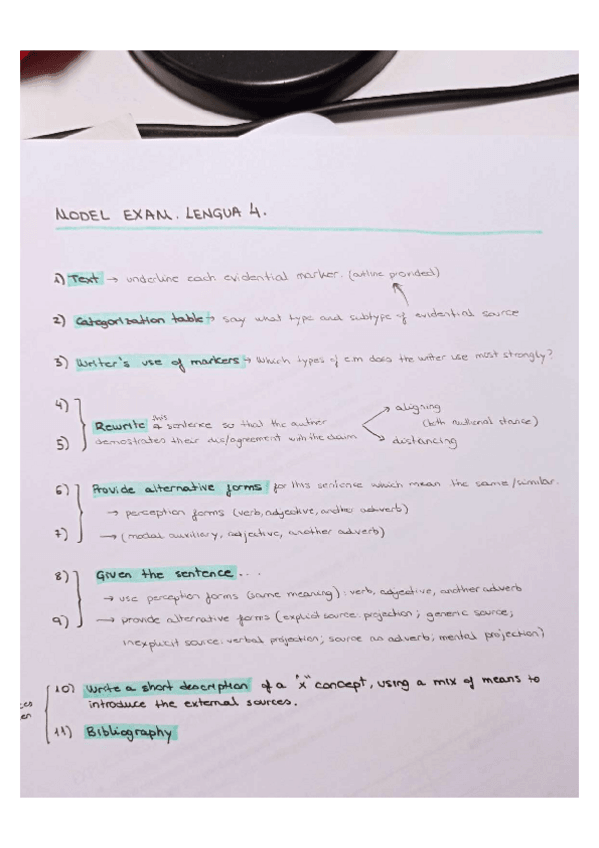 MODEL EXAM. LENGUA 4.
1) Text → underline each evidential marker. (outline provided)
2) Categorization table → say what type and subtype of evidential source
3) Writer's use of markers → Which types of e.m does the writer use most strongly?
4)
Rewrite this sentence so that the author → aligning
(both multional stance)
5) demostrates their dis/agreement with the claim → distancing
6) Provide alternative forms for this sentence which mean the same/similar.
→ perception forms (verb, adjective, another adverb)
7) → (modal auxiliary, adjective, another adverb)
8) Given the sentence...
→ use perception forms (same meaning): verb, adjective, another adverb
9) → provide alternative forms (explicit source: projection; generic source;
inexplicit source: verbal projection; source as adverb; mental projection)
10) Write a short description of a "x" concept, using a mix of means to
introduce the external sources.
11) Bibliography